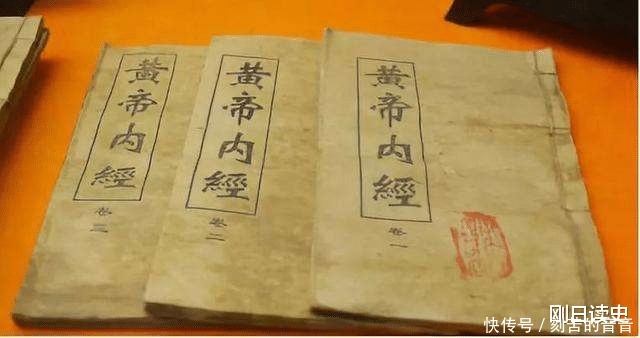 黄帝内經
卷三
黄帝内經
卷二
黄帝内經
卷一
刚日读史
快传号 / 刻苦的